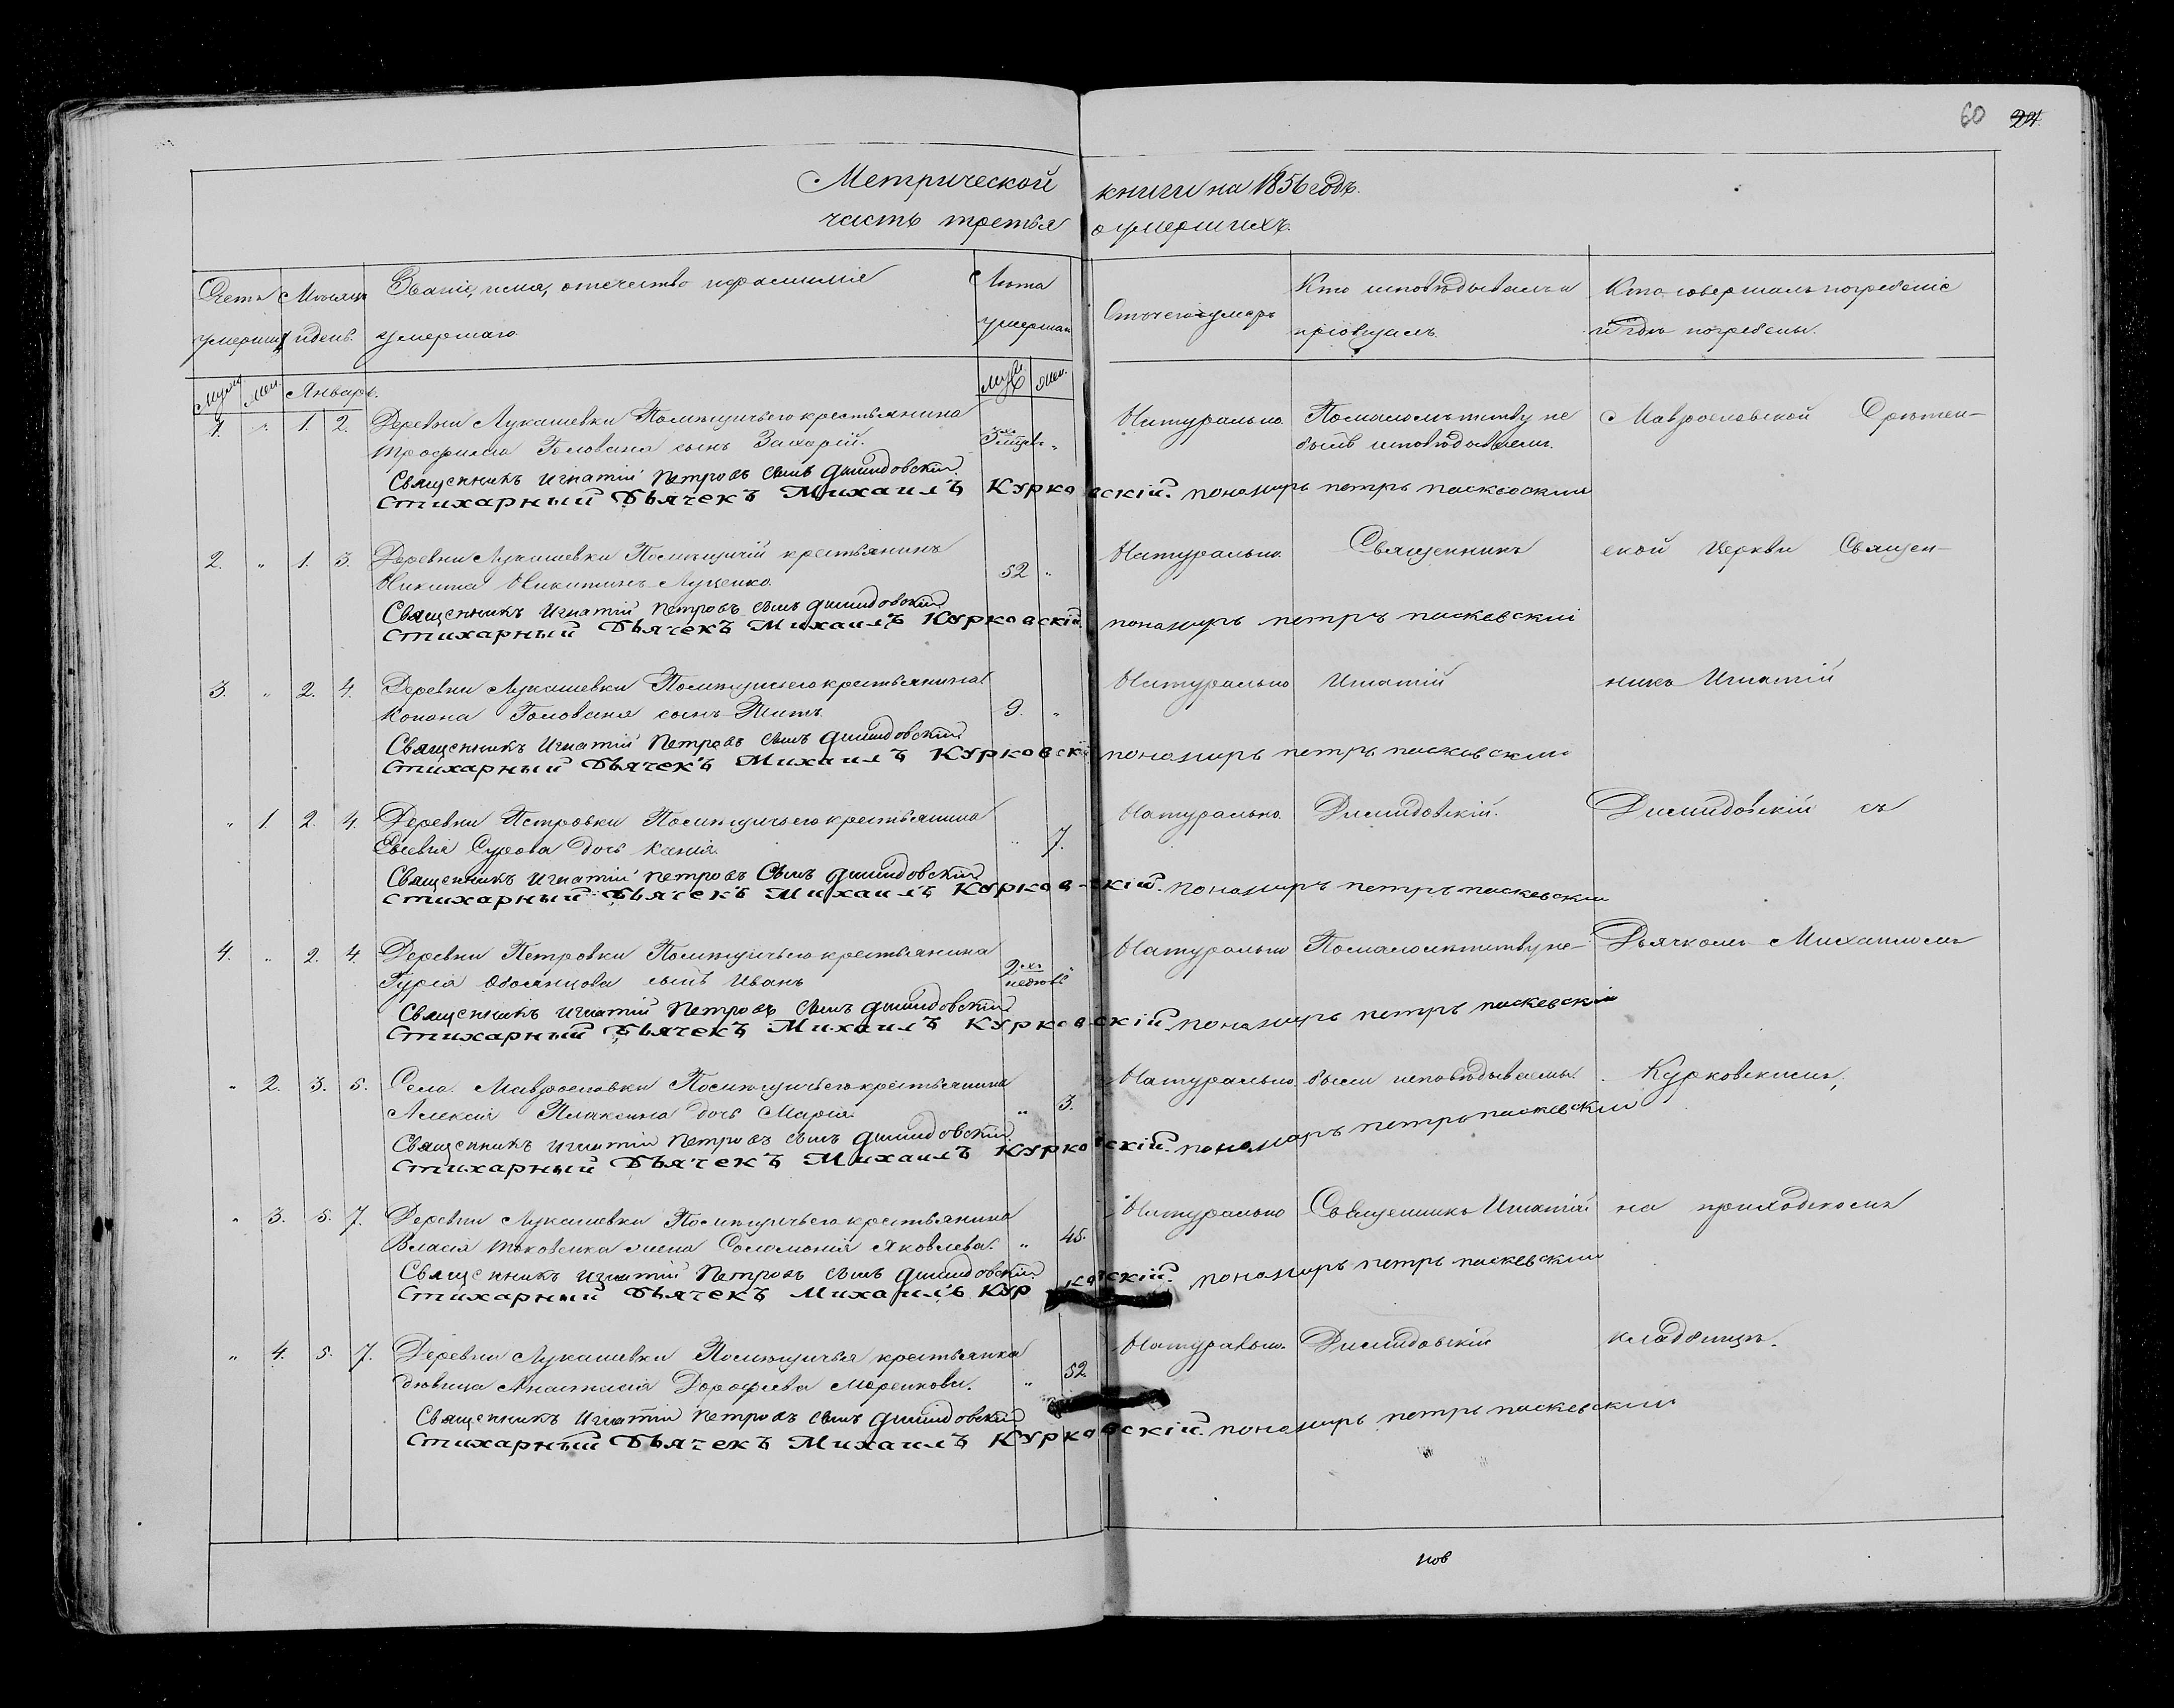 60 24.
Метрической книги на 1856 годъ.
часть третья о умершихъ.
Счетъ умершихъ
Мѣсяцъ и день.
Званіе, имя, отечество и фамилія умершаго
Лѣта умершаго
Отъ чего умеръ
Кто исповѣдывалъ и пріобщалъ.
Кто совершалъ погребеніе и гдѣ погребены.
Муж. Жен. Январь. Муж. Жен.
1. " 1. 2. Деревни Лукашевки Помѣщичьего крестьянина Натурально. По малолѣтству не Маврословской Срѣтен-
Трофима Голована сынъ Захарій. 3хъ " былъ исповѣдываемъ.
Священникъ Игнатій Петровъ сынъ Дишидовскій.
Стихарный Дьячекъ Михаилъ Курковскій. пономарь петръ паскевскии
2. " 1. 3. Деревни Лукашевки Помѣщичій крестьянинъ Натурально. Священникъ ской Церкви Священ-
Никита Никитинъ Луценко. 52 "
Священникъ Игнатій Петровъ сынъ Дишидовскій.
Стихарный Дьячекъ Михаилъ Курковскій. пономарь петръ паскевскій
3. " 2. 4. Деревни Лукашевки Помѣщичьего крестьянина Натурально Игнатій никъ Игнатій
Конона Голована сынъ Титъ. 9. "
Священникъ Игнатій Петровъ сынъ Дишидовскій
Стихарный Дьячекъ Михаилъ Курковскій пономарь петръ паскевскии
" 1. 2. 4. Деревни Петровки Помѣщичьего крестьянина Натурально. Дишидовскій. Дишидовскій съ
Евсевія Сурова дочь Ксенія. " 7.
Священникъ Игнатій Петровъ Сынъ Дишидовскій
Стихарный Дьячекъ Михаилъ Курковскій. пономарь петръ паскевскии
4. " 2. 4. Деревни Петровки Помѣщичьего крестьянина Натурально По малолѣтству не- Дьячкомъ Михаиломъ
Гурія сынъ Иванъ 2хъ недѣль "
Священникъ Игнатій Петровъ сынъ Дишидовскій
Стихарный Дьячекъ Михаилъ Курковскій. пономарь петръ паскевскій
" 2. 3. 5. Села Маврословки Помѣщичьего крестьянина Натурально были исповѣдываемы. Курковскимъ,
Алексія Плаксина дочь Марія. " 3.
Священникъ Игнатій Петровъ сынъ Дишидовскій.
Стихарный Дьячекъ Михаилъ Курковскій. пономарь петръ паскевскии
" 3. 5. 7. Деревни Лукашевки Помѣщичьего крестьянина Натурально Священникъ Игнатій на приходскомъ
Власія жена Соломонія Яковлева. " 45.
Священникъ Игнатій Петровъ сынъ Дишидовскій.
Стихарный Дьячекъ Михаилъ Курковскій. пономарь петръ паскевскии
" 4. 5. 7. Деревни Лукашевки Помѣщичья крестьянка Натурально. Дишидовскій кладбищѣ.
дѣвица Анастасія Дорофѣева Маренкова. " 52
Священникъ Игнатій Петровъ сынъ Дишидовскій
Стихарный Дьячекъ Михаилъ Курковскій. пономарь петръ паскевскии